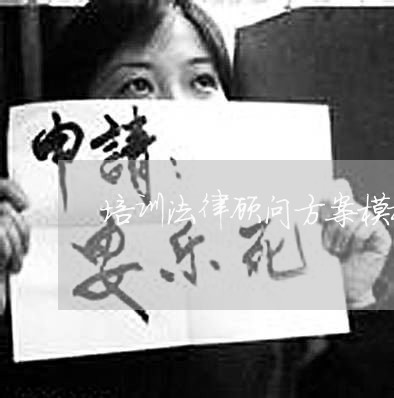 申請:
培训法律顾问方案模
安乐死